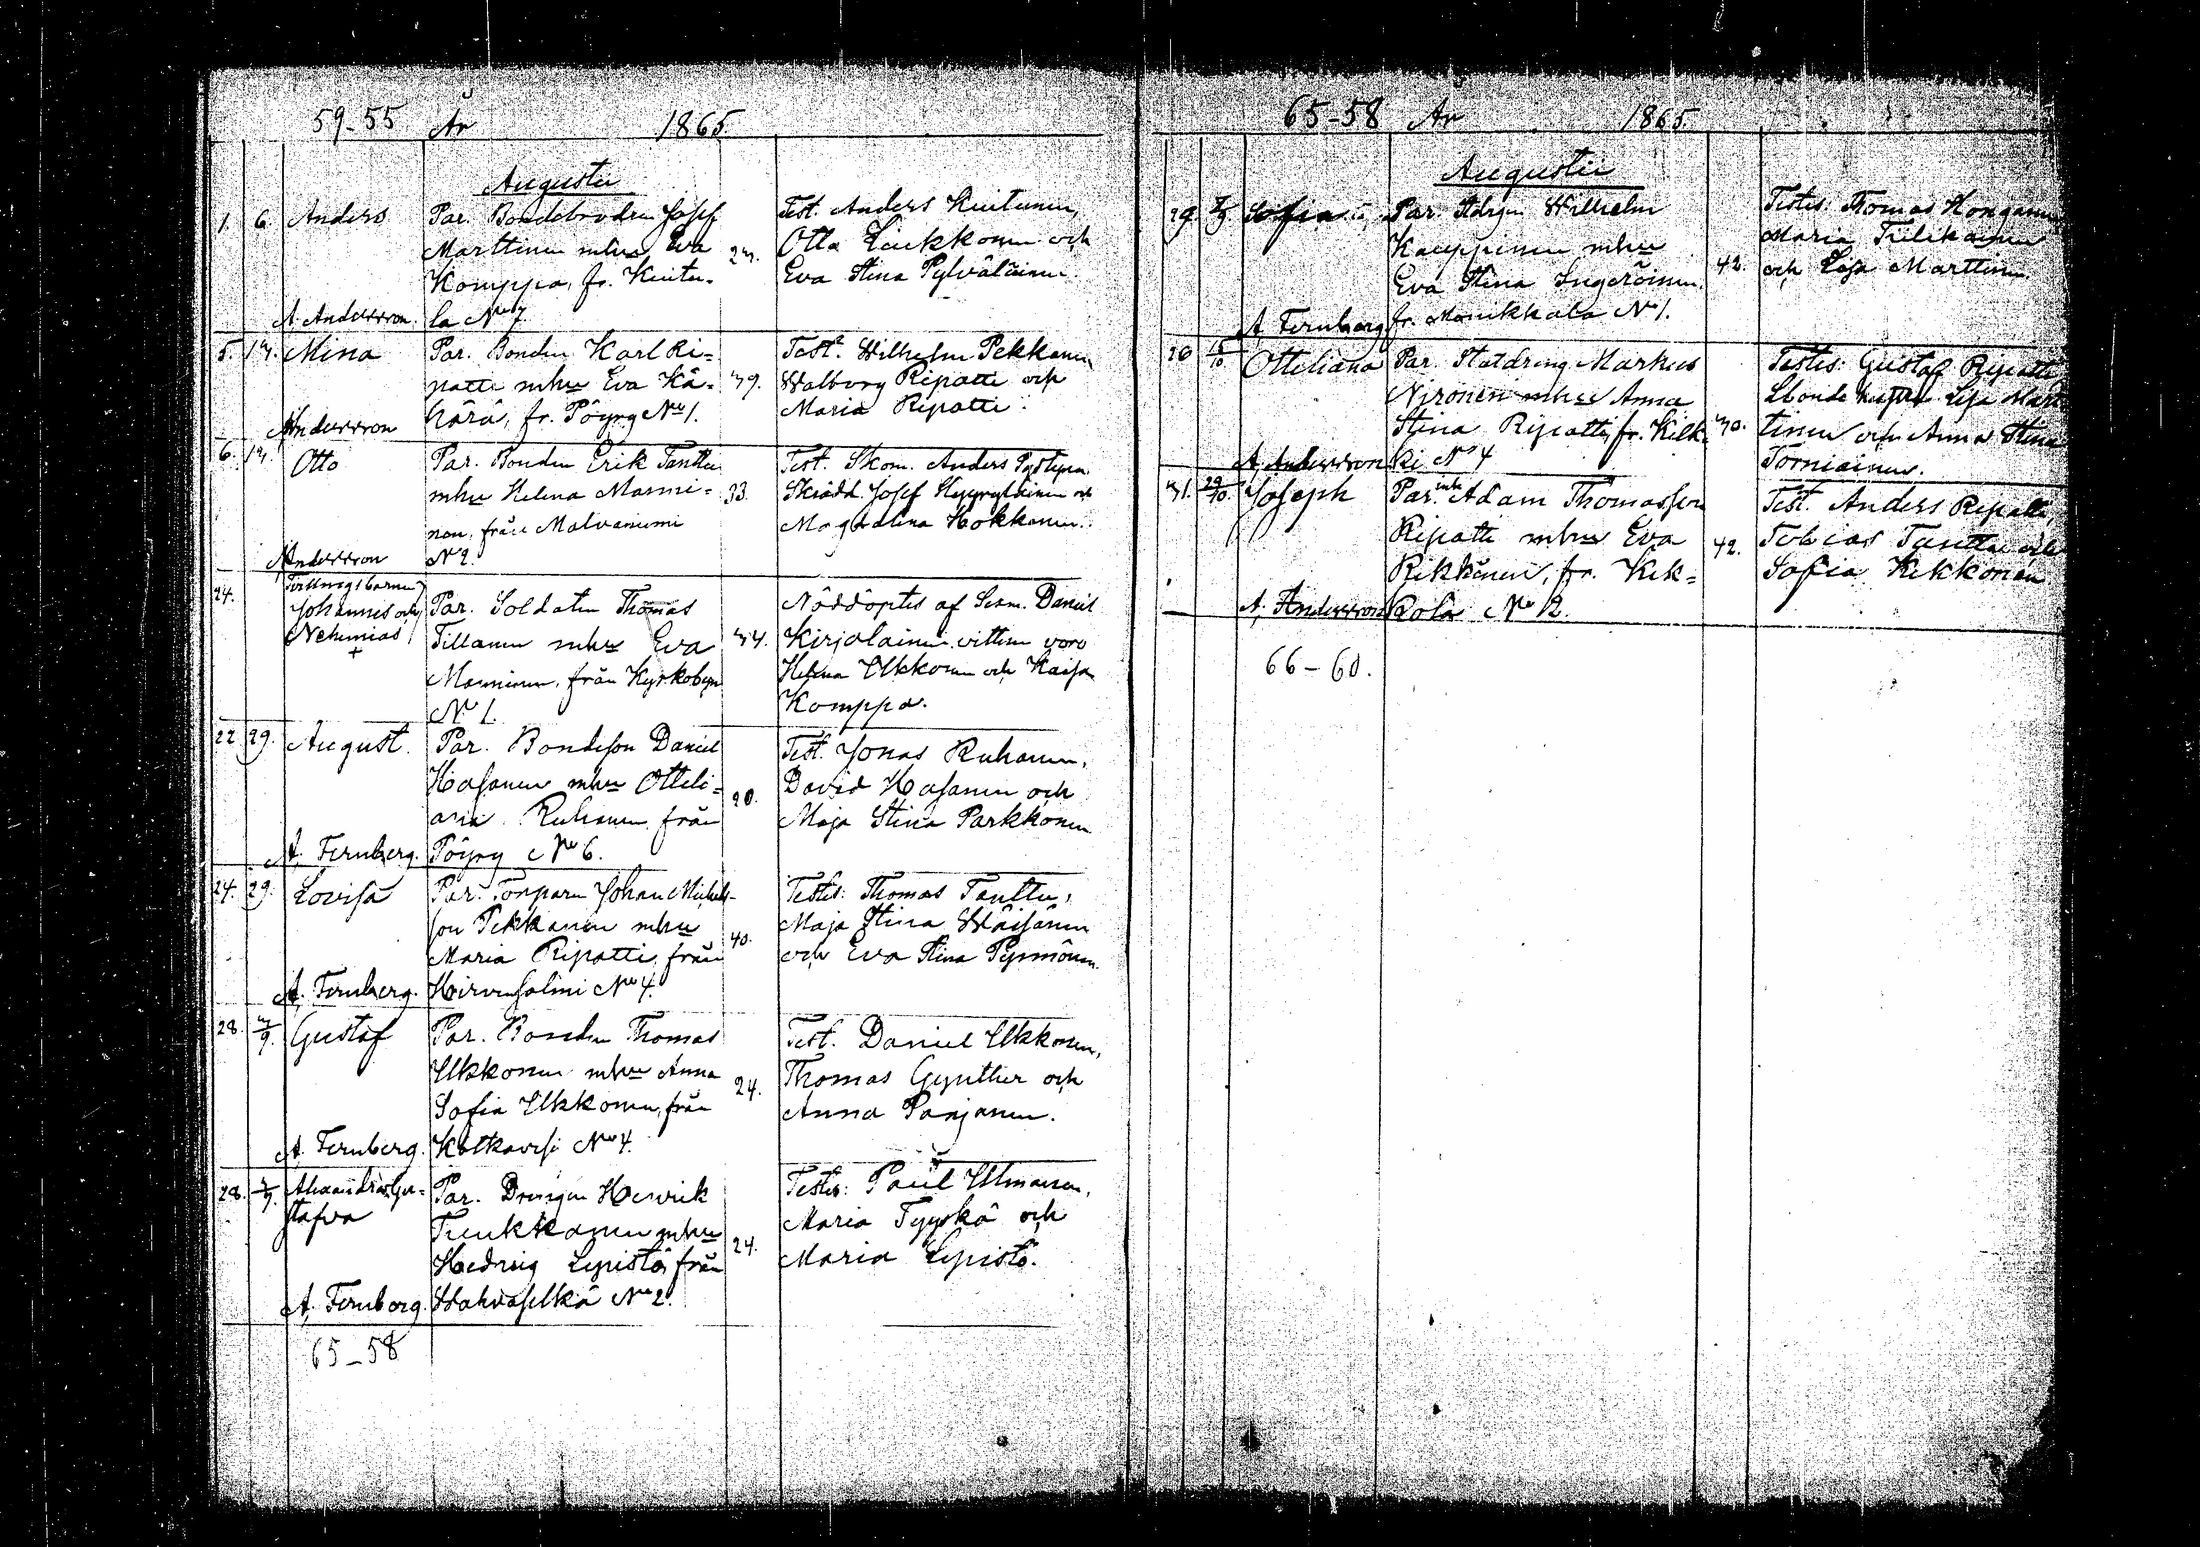 59-55 År 1865.
Augusti
1. 6. Anders Par. Bondebrodren Josef Test. Anders Kuitunen,
Marttinen mhu Eva Otto Liukkonen och
Komppa, fr. Kuitu- Eva Stina Pylväläinen.
A. Andersson. la No 7.
5. 13. Mina Par. Bonden Karl Ri= Test. Wilhelm Pekkanen
patti mhu Eva Kä= 39. Walborg Ripatti och
härä, fr. Pöyry No 1. Maria Ripatti.
Andersson
6. 13. Otto Par. Bonden Erik Tanttu Test. Skom. Anders
mhu Helena Manni= 33. Skrädd. Josef och
nen, från Malvaniemi Magdalena Hokkanen.
Andersson No 2.
24. Tvillingsbarnen
Johannes och Par. Soldaten Thomas Nöddöptes af Serm. Daniel
Nehemias Tillanen mhu Eva 34. Kirjalainen vittnen voro
+ Manninen, från Kyrkobyn Helena Ukkonen och Kaisa
No 1. Komppa.
22. 29. August. Par. Bondeson Daniel Test. Jonas Ruhanen,
Hasanen mhu Otteli= 20. David Hasanen och
ana Ruhanen från Maja Stina Parkkonen
A. Fernberg. Pöyry No 6.
24. 29. Lovisa Par. Torparn Johan Michels- Testes: Thomas Tanttu,
son Pekkanen mhu 40. Maja Stina Wäisänen
Maria Ripatti, från och Eva Stina
A. Fernberg. Hirvensalmi No 4.
28. 3/9. Gustaf Par. Bonden Thomas Test. Daniel Ukkonen,
Ukkonen mhu Anna 24. Thomas Gynther och
Sofia Ukkonen, från Anna Parjanen.
A. Fernberg. Kotkavesi No 4.
28. 3/9. Alexandra Gu= Par. Drengen Henrik Testes: Paul Utmanen,
stafva mhu Maria Tyyskä och
Hedvig Lepistö, från 24. Maria Lepistö.
A. Fernberg. Wahvaselkä No 2.
65-58
65-58 År 1865.
Augusti
29. Sofia Par. Stdrgn Wilhelm Testes: Thomas Honganen
Kauppinen mhu Maria Tulikainen
Eva Stina Ingeröinen, 42. och Lisa Marttinen.
A. Fernberg fr. Monikkala No 1.
26 Otteliana Par. Statdreng Markus Testes: Gustaf Ripatti
Nironen mhu Anna Lbonde hustru Lisa Mart
Stina Ripatti, fr. Kilk- 30. tinen och Anna Stina
A. Andersson ki No 4 Torniainen.
31. 29/10. Joseph Par. inh Adam Thomasson Test. Anders Ripatti,
Ripatti mhu Eva 42. Tobias Tanttu och
Rikkonen, fr. Kek= Sofia Kekkonen
A. Andersson kola No 12.
66-60.